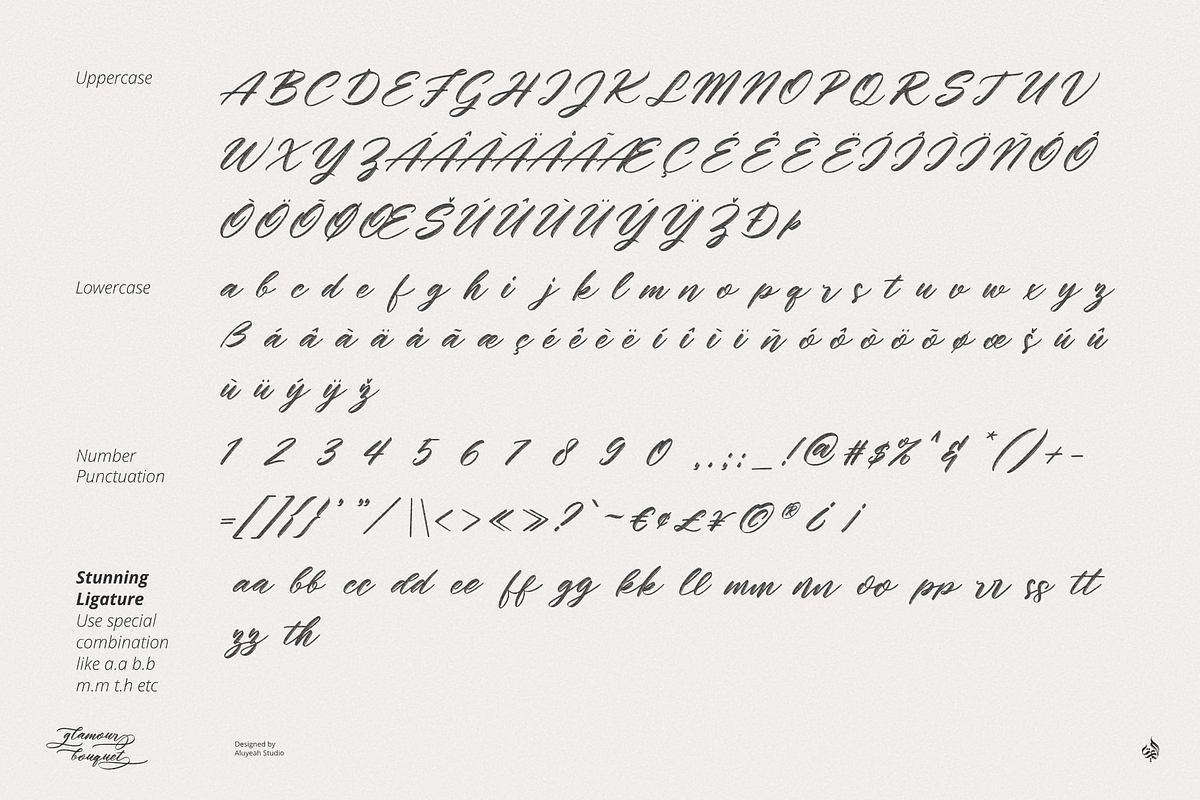 Uppercase
A B C D E F G H I J K L M N O P Q R S T U V
W X Y Z Á Â À Ä Å Ã Æ Ç É Ê È Ë Í Î Ì Ï Ñ Ó Ô
Ò Ö Õ Ø Œ Š Ú Û Ù Ü Ý Ÿ Ž Ð þ
Lowercase
a b c d e f g h i j k l m n o p q r s t u v w x y z
ß á â à ä å ã æ ç é ê è ë í î ì ï ñ ó ô ò ö õ ø œ š ú û
ù ü ý ÿ ž
Number
Punctuation
1 2 3 4 5 6 7 8 9 0 , . ; : _ ! @ # $ % ^ & * ( ) + -
= [ ] { } ’ ” / | \ < > « » ? ` ~ € ¢ £ ¥ © ® ¿ ¡
Stunning
Ligature
Use special
combination
like a.a b.b
m.m t.h etc
aa bb cc dd ee ff gg kk ll mm nn oo pp rr ss tt
zz th
glamour
bouquet
Designed by
Aluyeah Studio